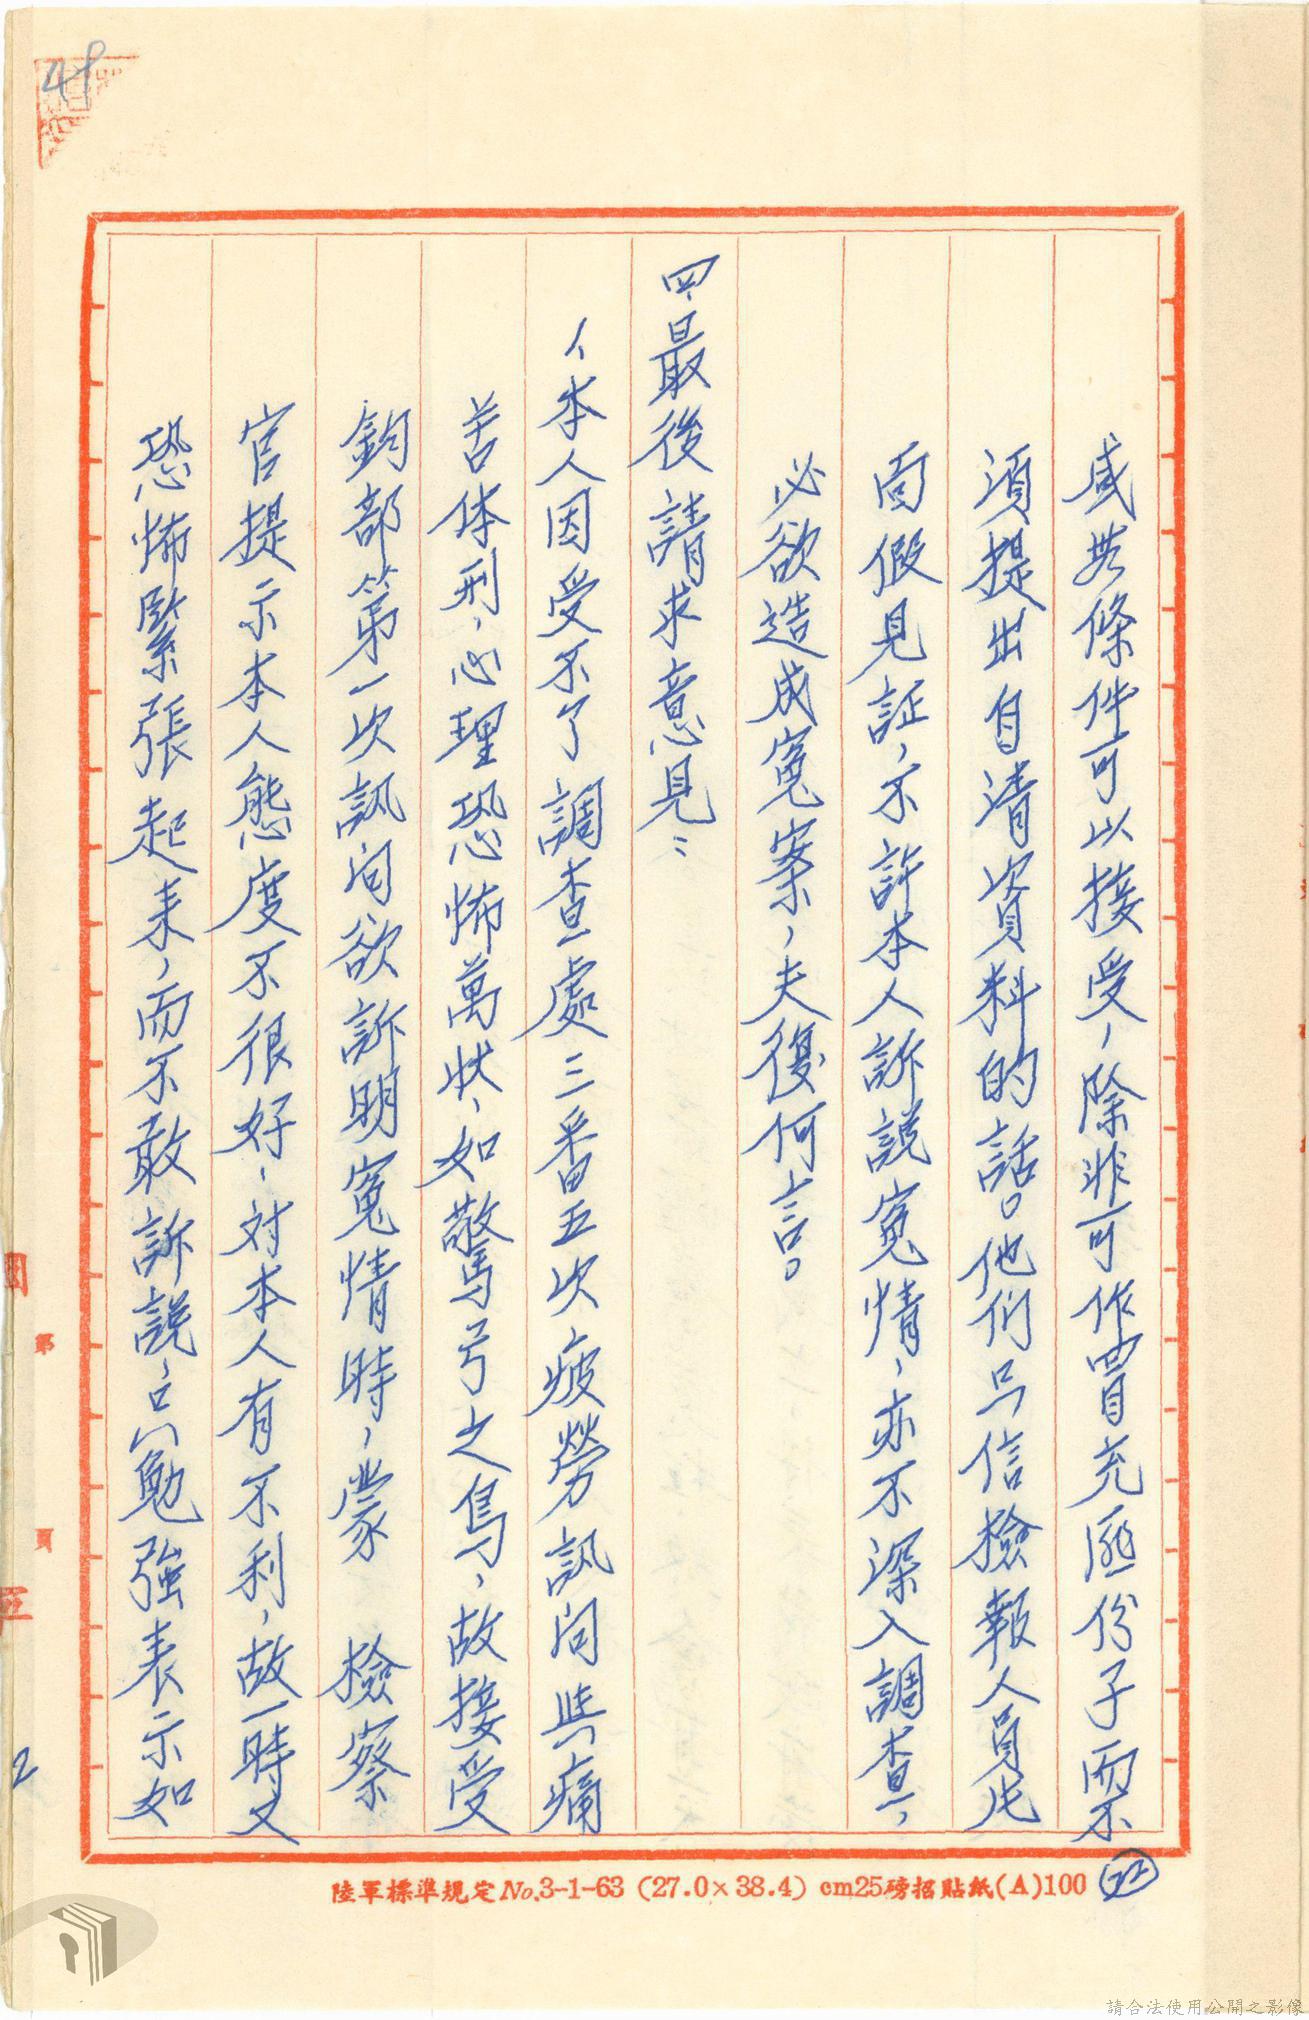 咸無條件可以接受，除非可作冒充匪份子而不
須提出自清資料的話。他們只信檢報人員片
面假見証，不許本人訴說寃情，亦不深入調查，
必欲造成寃案，夫復何言。
四、最後請求意見：
1、本人因受不了調查處三番五次疲勞訊问與痛
苦体刑，心理恐怖萬狀，如驚弓之鳥，故接受
鈞部第一次訊问欲訴明寃情時，蒙　檢察
官提示本人態度不很好，対本人有不利，故一時又
恐怖緊張起來，而不敢訴說，只勉強表示如
陸軍標準規定No.3-1-63（27.0×38.4）cm25磅招貼紙(A)100
22
第
頁
2
請合法使用公開之影像